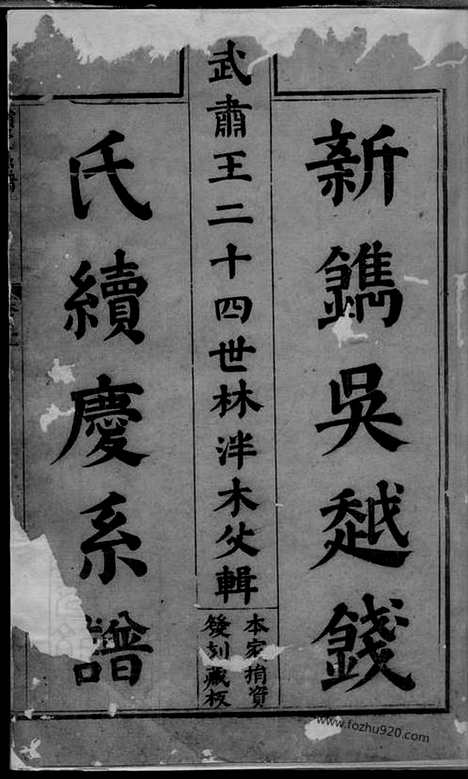 新鐫吳越錢
武肅王二十四世林泮木父輯
本家捐資
發刻藏板
氏續慶系譜
www.fozhu920.com